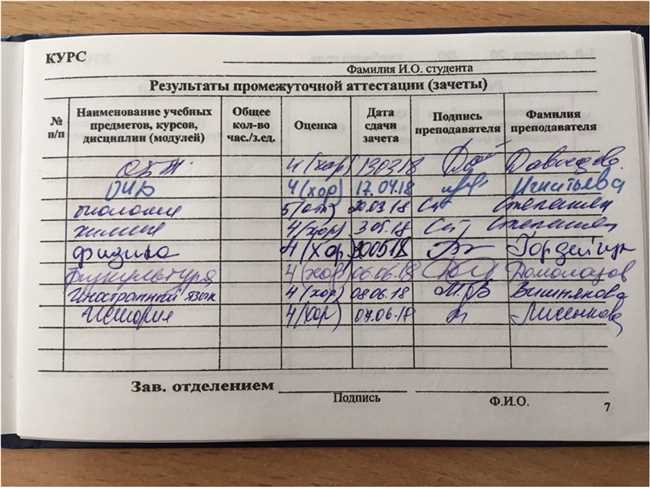 КУРС
Фамилия И.О. студента
Результаты промежуточной аттестации (зачеты)
№ п/п Наименование учебных предметов, курсов, дисциплин (модулей) Общее кол-во час./з.ед. Оценка Дата сдачи зачета Подпись преподавателя Фамилия преподавателя
4 (хор) 130318 Давыдова
4 (хор) 17.04.18 Игнатьева
биология 5 (отл) 20.03.18 Степанян
химия 4 (хор) 3.05.18 Степанян
физика 4 (хор) Гордейчик
Физкультура 4 (хор) 06.06.18
Иностранный язык 4 (хор) 08.06.18 Вишнякова
История 4 (хор) 07.06.18 Лисенкова
Зав. отделением
Подпись Ф.И.О.
7